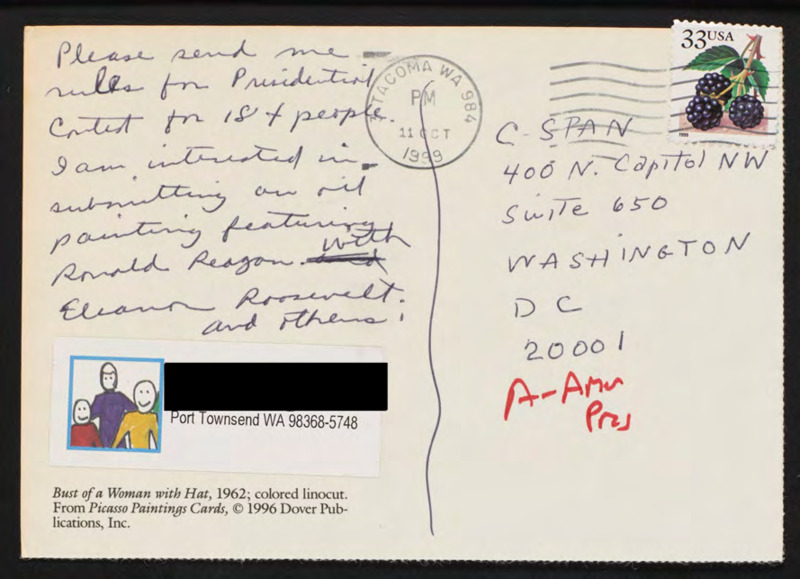 Please send me
rules for Presidential
Contest for 18 + people.
I am interested in
submitting an oil
painting featuring
Ronald Reagan with
Eleanor Roosevelt.
and others!
Port Townsend WA 98368-5748
Bust of a Woman with Hat, 1962; colored linocut.
From Picasso Paintings Cards, © 1996 Dover Pub-
lications, Inc.
TACOMA WA 984
PM
11 OCT
1999
33USA
1999
C-SPAN
400 N. Capitol NW
Suite 650
WASHINGTON
DC
20001
A-Amer
Pres